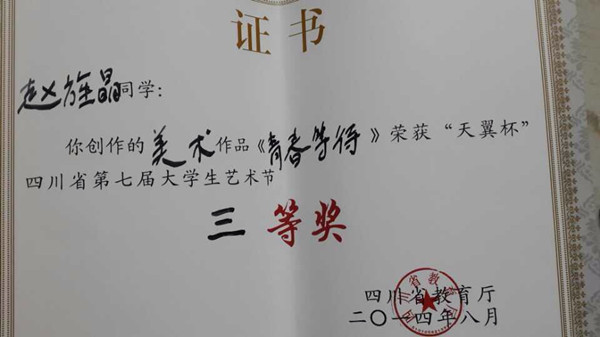 证书
赵旌晶同学:
你创作的美术作品《青春等待》荣获“天翼杯”
四川省第七届大学生艺术节
三等奖
四川省教育厅
二〇一四年八月